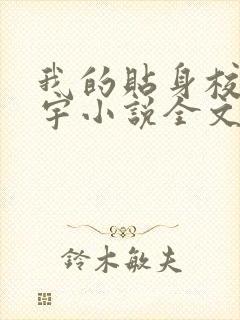 我的貼身校
宇小説全文
鈴木敏夫